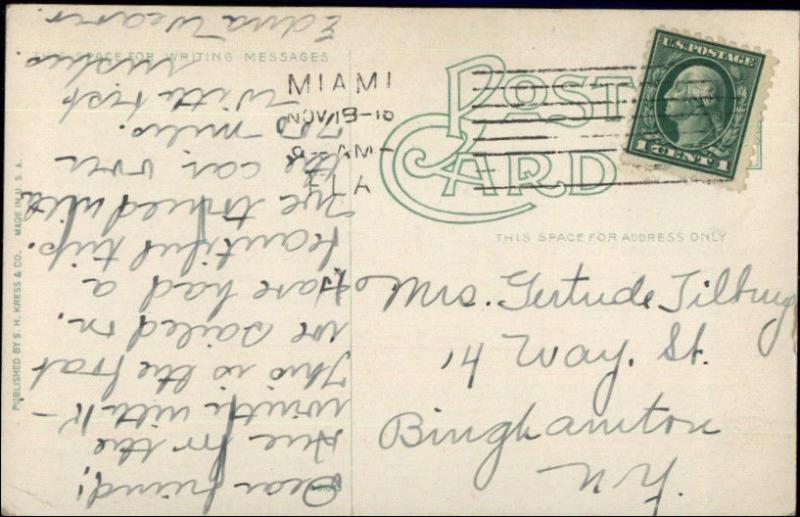 THIS SPACE FOR WRITING MESSAGES
Dear friend;
for the
winter with
This is the boat
we sailed on.
Have had a
beautiful trip.
the car, over
miles.
With best
wishes
Edna Weaver
PUBLISHED BY S. H. KRESS & CO. MADE IN U. S. A.
MIAMI
NOV 19
AM
FLA
POST
CARD
U.S. POSTAGE
1 CENT 1
THIS SPACE FOR ADDRESS ONLY
Mrs. Gertrude Tilbury
14 Way. St.
Binghamton
N.Y.